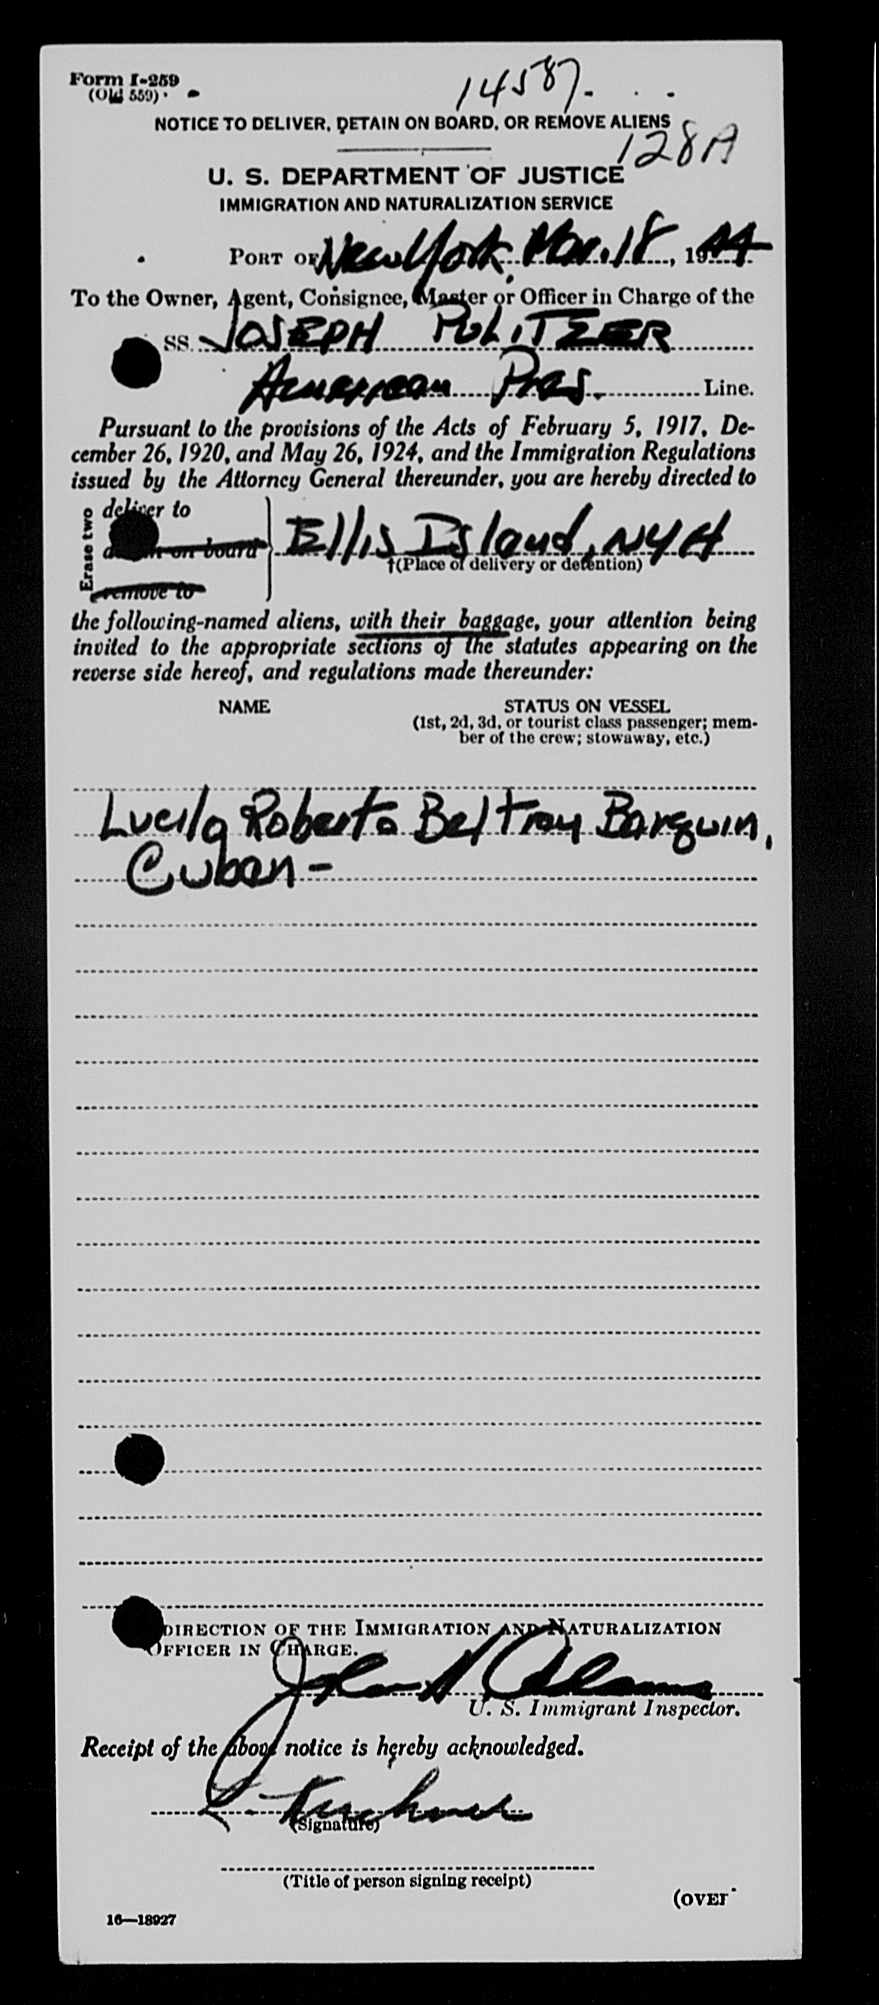 Form I-259
(Old 559)
14587
NOTICE TO DELIVER, DETAIN ON BOARD, OR REMOVE ALIENS
128A
U. S. DEPARTMENT OF JUSTICE
IMMIGRATION AND NATURALIZATION SERVICE
PORT OF New York, Mar. 18, 1944
To the Owner, Agent, Consignee, Master or Officer in Charge of the
SS. JOSEPH PULITZER
American Pres. Line.
Pursuant to the provisions of the Acts of February 5, 1917, De-
cember 26, 1920, and May 26, 1924, and the Immigration Regulations
issued by the Attorney General thereunder, you are hereby directed to
Erase two
deliver to
on board
Ellis Island, NYH
†(Place of delivery or detention)
remove to
the following-named aliens, with their baggage, your attention being
invited to the appropriate sections of the statutes appearing on the
reverse side hereof, and regulations made thereunder:
NAME STATUS ON VESSEL
(1st, 2d, 3d, or tourist class passenger; mem-
ber of the crew; stowaway, etc.)
Lucila Roberto Beltran Barquin,
Cuban -
DIRECTION OF THE IMMIGRATION AND NATURALIZATION
OFFICER IN CHARGE.
John
U. S. Immigrant Inspector.
Receipt of the above notice is hereby acknowledged.
L.
(Signature)
(Title of person signing receipt)
(OVER
16—18927